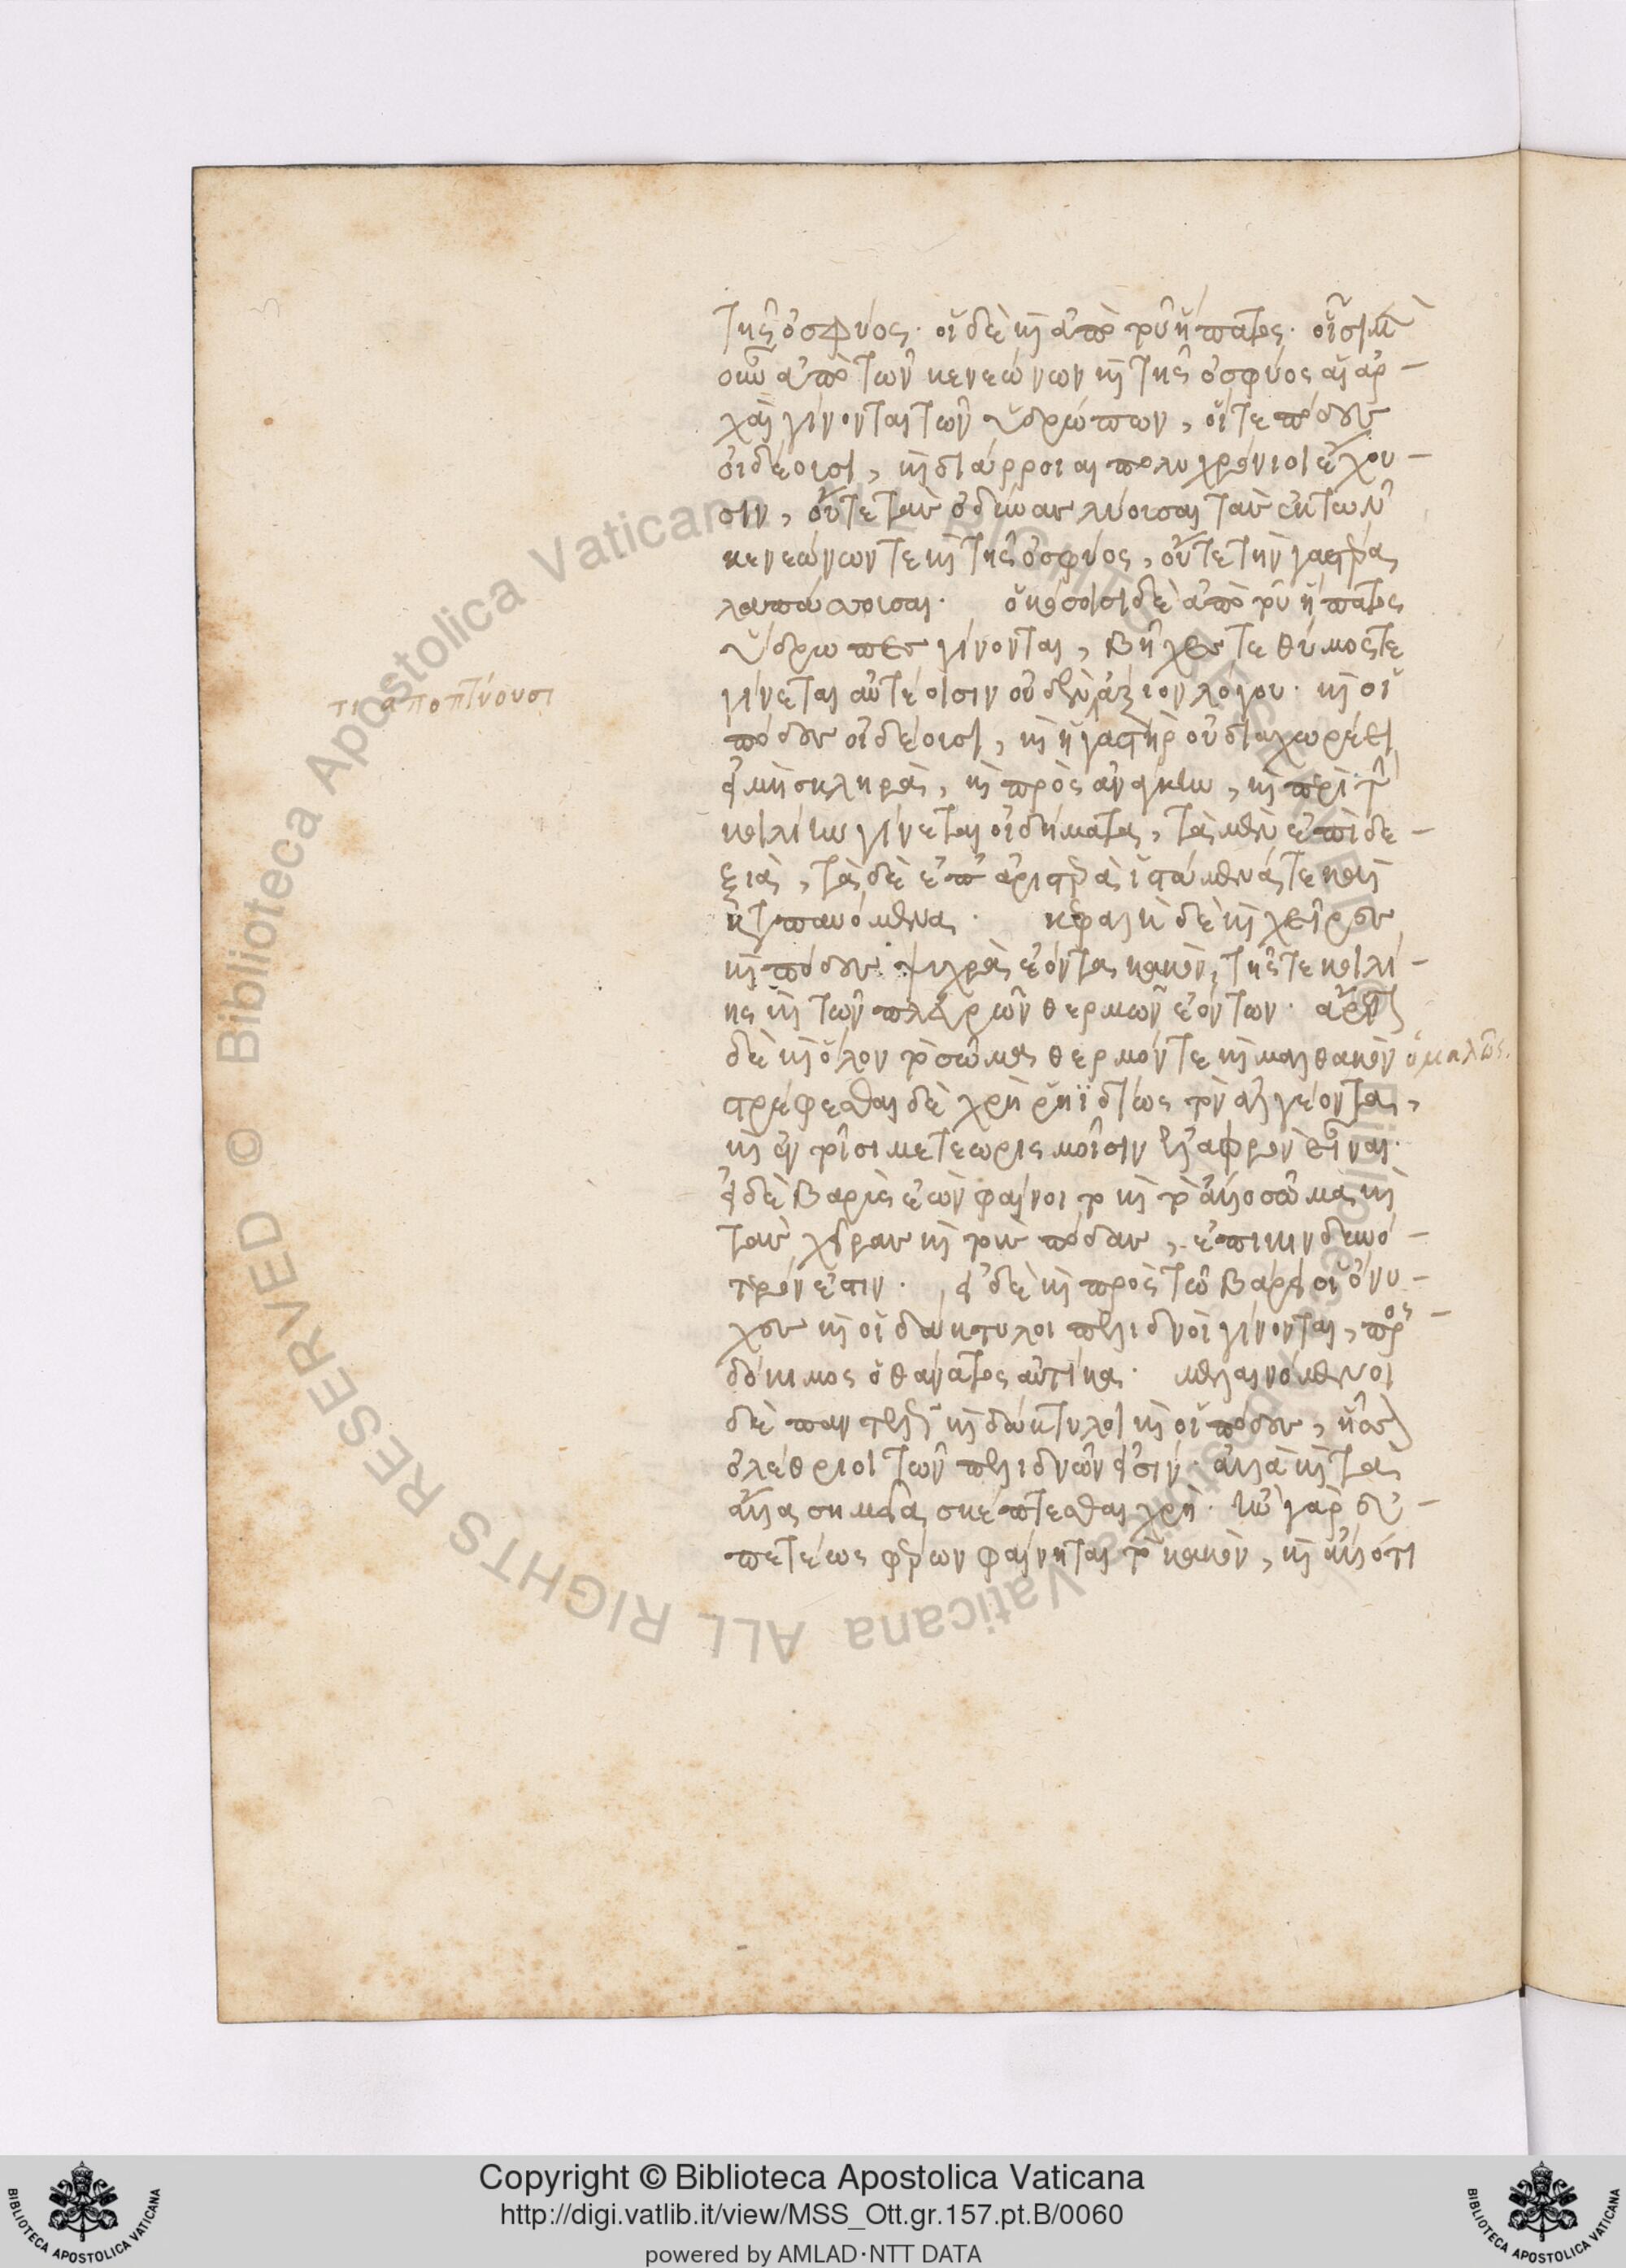 τῆς ὀσφύος· οἱ δὲ καὶ ἀπὸ τοῦ ἥπατος· οἷσι μὲν
οὖν ἀπὸ τῶν κενεώνων καὶ τῆς ὀσφύος αἱ ἀρ-
χαὶ γίνονται τῶν ὑδρώπων, οἵ τε πόδες
οἰδέουσι, καὶ διάρροιαι πολυχρόνιοι ἔχου-
σιν, οὔτε τὰς ὀδύνας λύουσαι τὰς ἐκ τῶν
κενεώνων τε καὶ τῆς ὀσφύος, οὔτε τὴν γαστέρα
λαπάσσουσαι. ὁκόσοισι δὲ ἀπὸ τοῦ ἥπατος
ὕδρωπες γίνονται, βῆχές τε θυμός τε
γίνεται αὐτέοισιν οὐδὲν ἄξιον λόγου· καὶ οἱ
πόδες οἰδέουσι, καὶ ἡ γαστὴρ οὐ διαχωρέει
εἰ μὴ σκληρὰ, καὶ πρὸς ἀνάγκην, καὶ περὶ τὴν
κοιλίην γίνεται οἰδήματα, τὰ μὲν ἐπὶ δε-
ξιὰ, τὰ δὲ ἐπ' ἀριστερὰ ἱστάμενά τε καὶ
καταπαυόμενα. κεφαλὴ δὲ καὶ χεῖρες
καὶ πόδες ψυχρὰ ἐόντα κακὸν, τῆς τε κοιλί-
ης καὶ τῶν πλευρῶν θερμῶν ἐόντων· ἄριστον
δὲ καὶ ὅλον τὸ σῶμα θερμόν τε καὶ μαλθακὸν ὁμαλῶς.
στρέφεσθαι δὲ χρὴ ῥηϊδίως τὸν ἀλγέοντα,
καὶ ἐν τοῖσι μετεωρισμοῖσιν ἐλαφρὸν εἶναι·
εἰ δὲ βαρὺς ἐὼν φαίνοιτο καὶ τὸ ἄλλο σῶμα καὶ
τὰς χεῖρας καὶ τοὺς πόδας, ἐπικινδυνό-
τερόν ἐστιν. εἰ δὲ καὶ πρὸς τῷ βάρει οἱ ὄνυ-
χες καὶ οἱ δάκτυλοι πελιδνοὶ γίνονται, προσ-
δόκιμος ὁ θάνατος αὐτίκα. μελαινόμενοι
δὲ παντελῶς καὶ δάκτυλοι καὶ οἱ πόδες, ἧσσον
ὀλέθριοι τῶν πελιδνῶν εἰσίν· ἀλλὰ καὶ τὰ
ἄλλα σημεῖα σκέπτεσθαι χρή. ἢν γὰρ εὐ-
πετέως φέρων φαίνηται τὸ κακὸν, καὶ ἄλλό τι
τι ἀποπτύουσι
Copyright © Biblioteca Apostolica Vaticana
http://digi.vatlib.it/view/MSS_Ott.gr.157.pt.B/0060
powered by AMLAD·NTT DATA
BIBLIOTECA APOSTOLICA VATICANA
BIBLIOTECA APOSTOLICA VATICANA
Biblioteca Apostolica Vaticana ALL RIGHTS RESERVED ©
Biblioteca Apostolica Vaticana ALL RIGHTS RESERVED ©